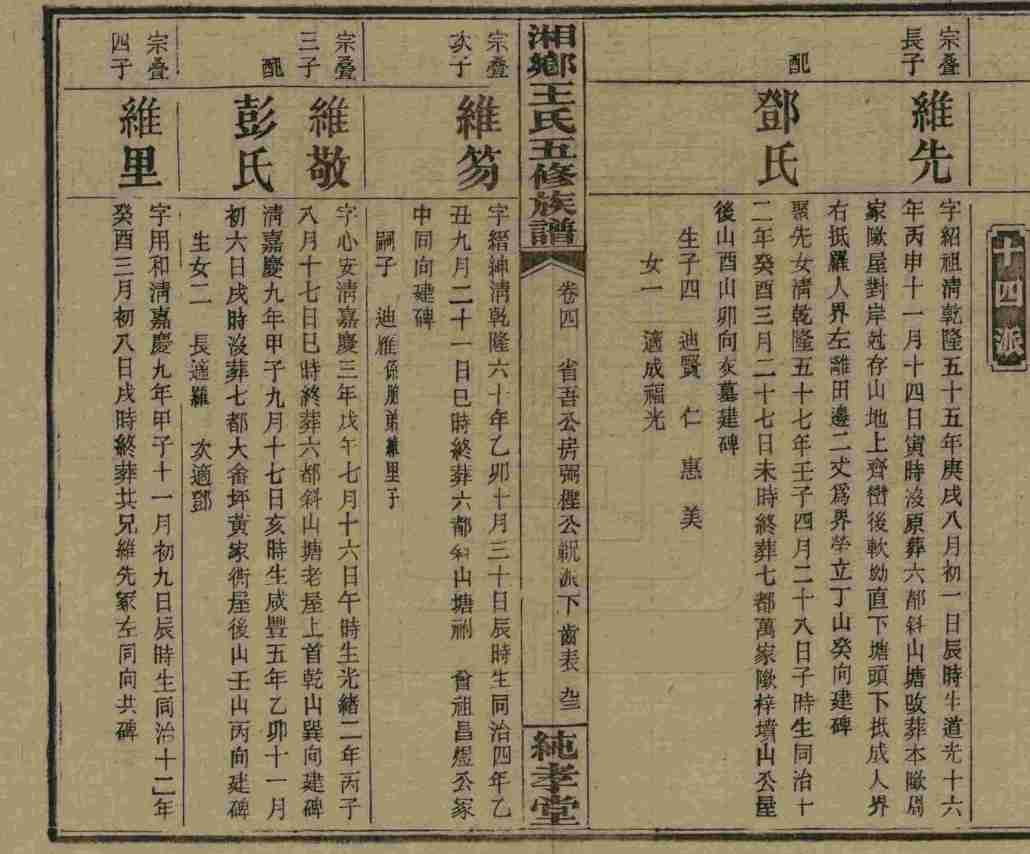 十四派
宗叠長子
維先
字紹祖淸乾隆五十五年庚戌八月初一日辰時生道光十六
年丙申十一月十四日寅時沒原葬六都斜山塘改葬本歐周
家歐屋對岸尅存山地上齊巒後軟坳直下塘頭下抵成人界
右抵羅人界左離田邊二丈爲界塋立丁山癸向建碑
配
鄧氏
聚先女淸乾隆五十七年壬子四月二十八日子時生同治十
二年癸酉三月二十七日未時終葬七都萬家歐梓墳山公屋
後山酉山卯向灰墓建碑
生子四 迪賢 仁 惠 美
女一 適成福光
湘鄉王氏五修族譜
卷四 省吾公房弼俚公毅派下齒表
純孝堂
宗叠次子
維笏
字縉紳淸乾隆六十年乙卯十月三十日辰時生同治四年乙
丑九月二十一日巳時終葬六都斜山塘祔 曾祖昌煜公冢
中同向建碑
嗣子 迪雁係胞弟維里子
宗叠三子
維敬
字心安淸嘉慶三年戊午七月十六日午時生光緒二年丙子
八月十七日巳時終葬六都斜山塘老屋上首乾山巽向建碑
配
彭氏
淸嘉慶九年甲子九月十七日亥時生咸豐五年乙卯十一月
初六日戌時沒葬七都大畬坪黃家衖屋後山壬山丙向建碑
生女二 長適羅 次適鄧
宗叠四子
維里
字用和淸嘉慶九年甲子十一月初九日辰時生同治十二年
癸酉三月初八日戌時終葬共兄維先冢左同向共碑